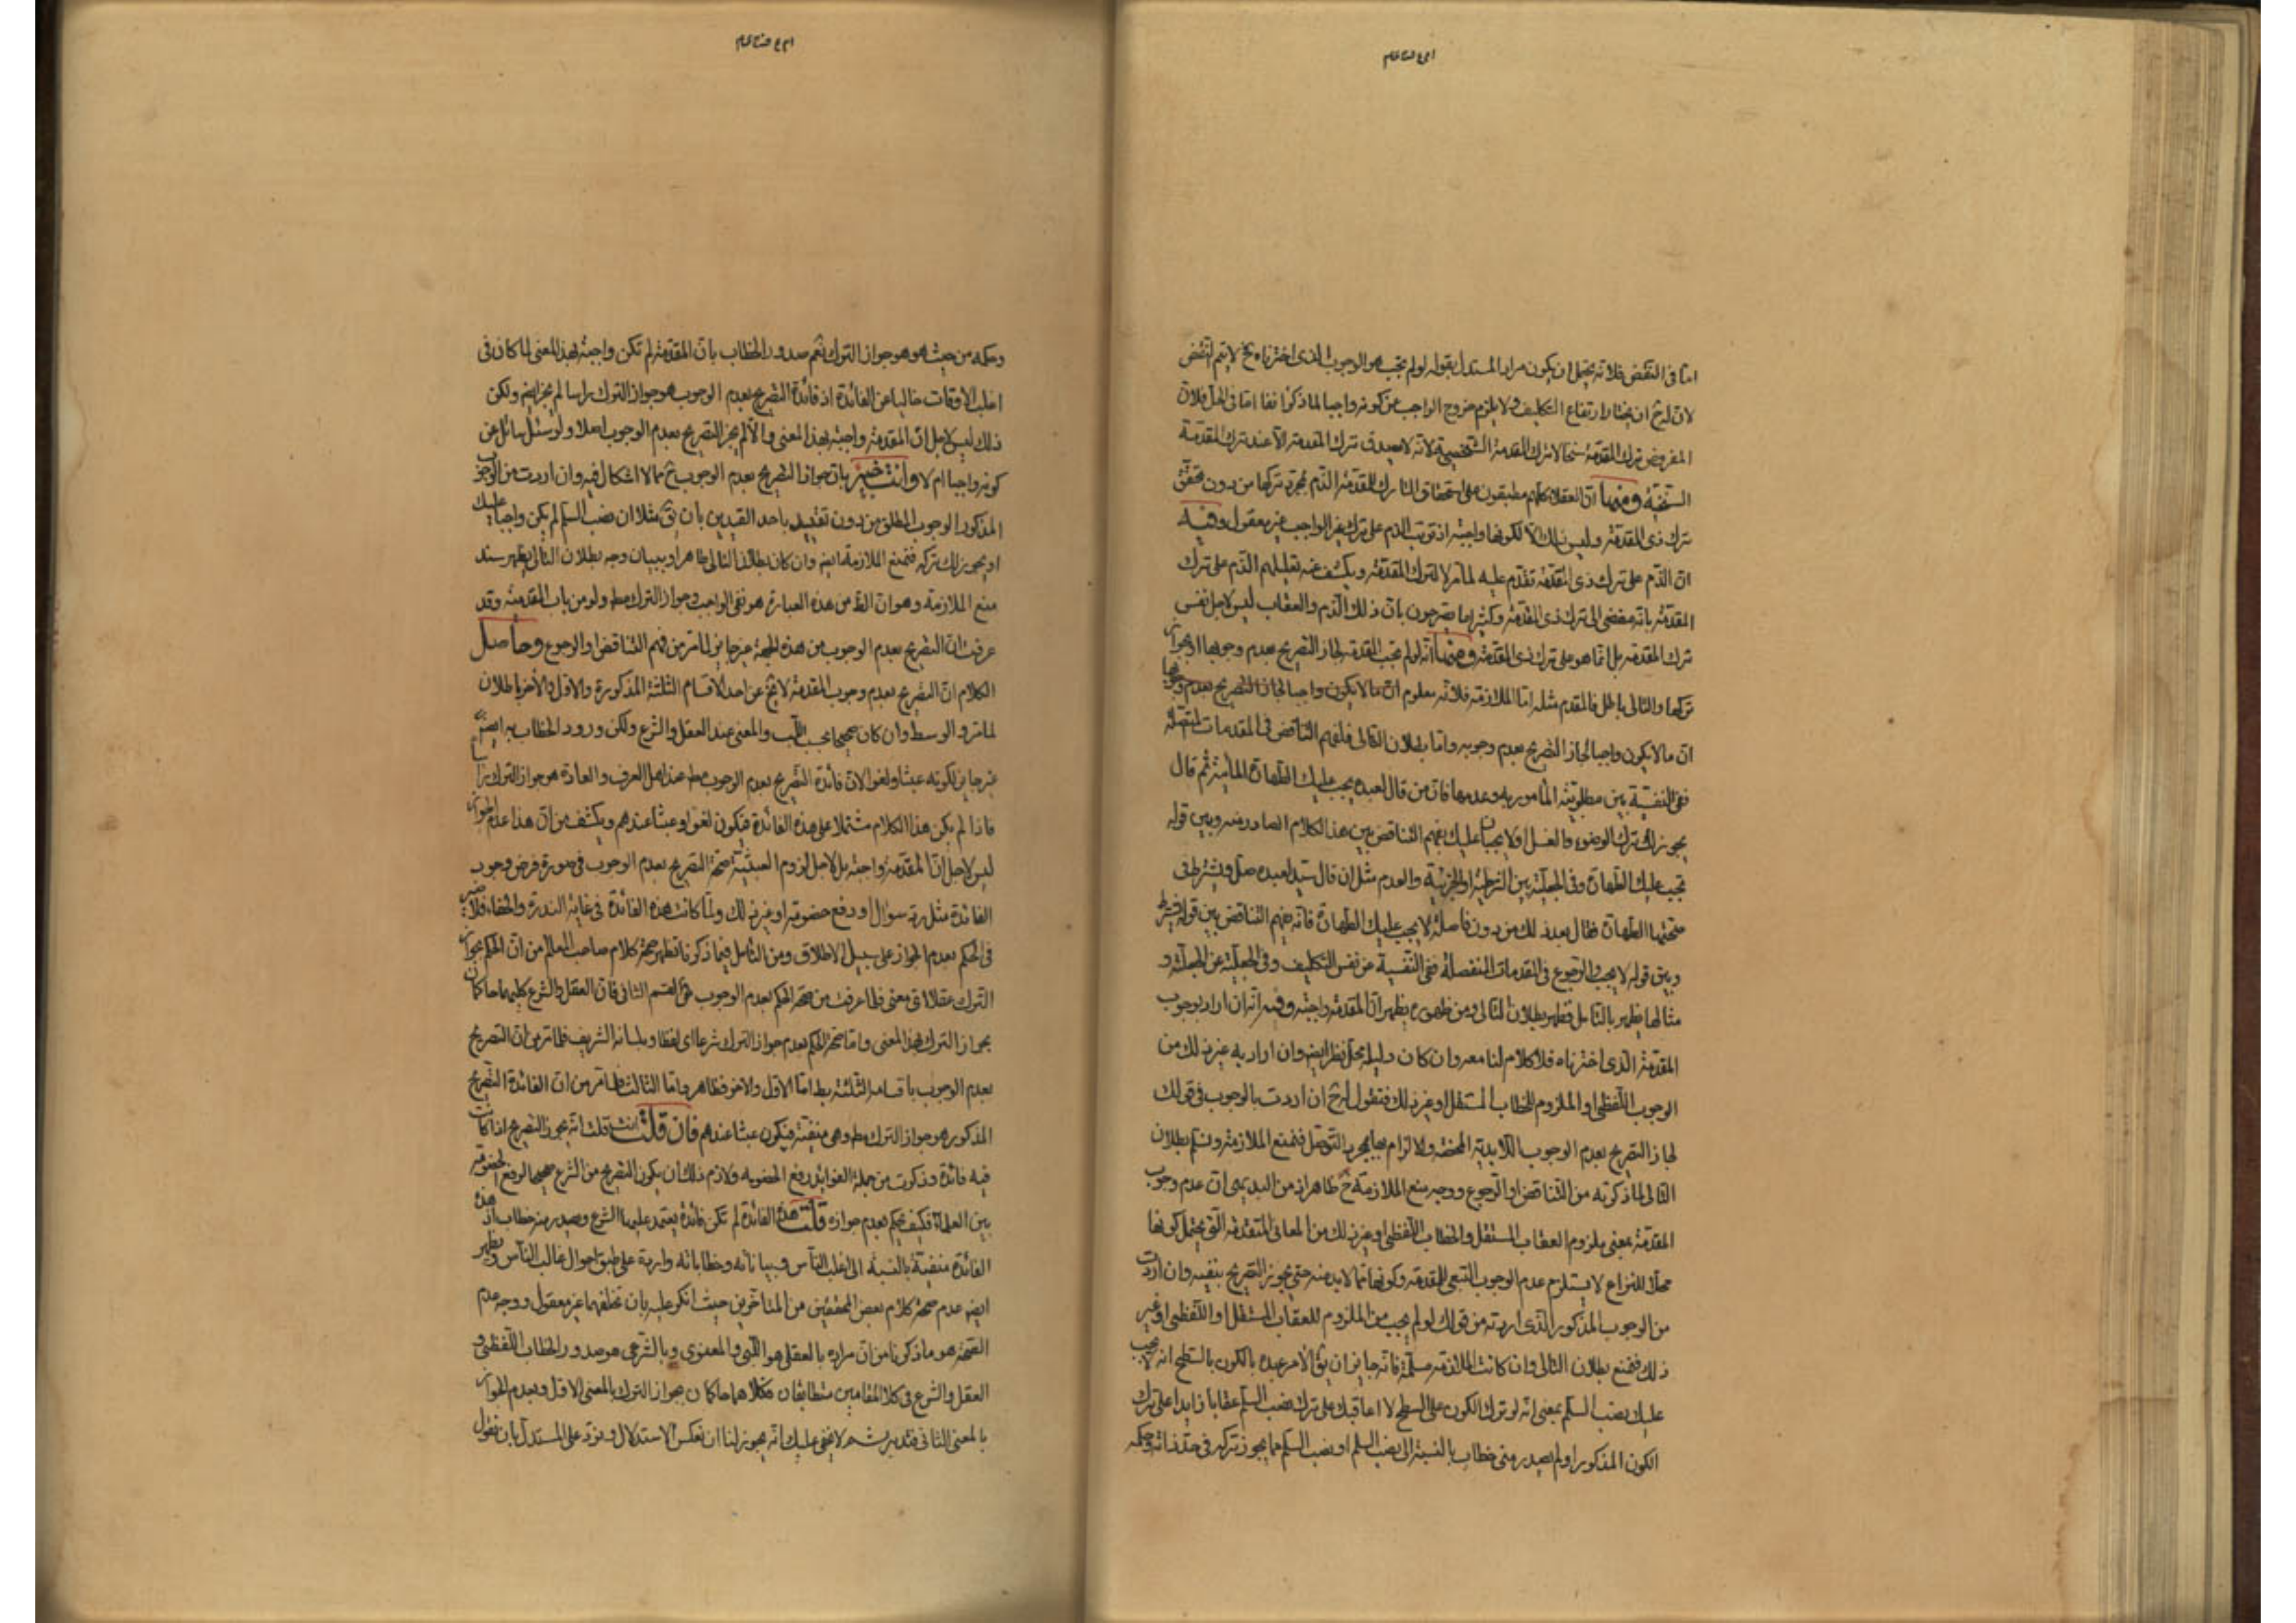 اما فى النقض فلانه يحتمل ان يكون مراد المستدل بقوله لو لم يجب هو الوجوب الذى اخترناه فح لا يتم النقض
لان له ح ان يختار ارتفاع التكليف ولا يلزم خروج الواجب عن كونه واجبا لما ذكر انفا اما فى الحل فلان
المفروض ترك المقدمة لا ترك المقدمة الشخصية لانه لا يصدق ترك المقدمة الا عند ترك المقدمة
ومنها ان العقلاء كلهم مطبقون على استحقاق التارك للمقدمة الذم بمجرد تركها من دون تحقق
ترك ذى المقدمة وليس ذلك الا لكونها واجبة اذ ترتب الذم على ترك غير الواجب غير معقول وفيه
ان الذم على ترك ذى المقدمة تقدم عليه لما مر لا لترك المقدمة ويكشف عنه تعليلهم الذم على ترك
المقدمة بانه مفضى الى ترك ذى المقدمة وكثيرا ما يصرحون بان ذلك الذم والعقاب ليس لاجل نفس
ترك المقدمة بل انما هو على ترك ذى المقدمة ومنها انه لو لم تجب المقدمة لجاز التصريح بعدم وجوبها او بجواز
تركها والتالى باطل فالمقدم مثله اما الملازمة فلانه معلوم ان ما لا يكون واجبا لجاز التصريح بعدم وجوبها
ان ما لا يكون واجبا لجاز التصريح بعدم وجوبه واما بطلان التالى فلفهم التناقض فى المقدمات المتصلة
ففى النفسية بين مطلوبية المأمور به وعدمها فان من قال لعبده يجب عليك الطهارة المائية ثم قال
يجوز لك ترك الوضوء والغسل او لا يجبان عليك يفهم التناقض بين هذا الكلام الصادر منه وبين قوله
تجب عليك الطهارة وفى الجعلية بين الشرطية او الجزئية والعدم مثل ان قال سيد لعبده صل ويشترط فى
صحتها الطهارة فقال بعد ذلك من دون فاصلة لا يجب عليك الطهارة فانه يفهم التناقض بين قوله يشترط
وبين قوله لا يجب والرجوع فى المقدمات المنفصلة ففى النفسية عن نفس التكليف وفى الجعلية عن الجعلية و
مثالها يظهر بالتامل فظهر بطلان التالى ومن ظهوره يظهر ان المقدمة واجبة وفيه انه ان اراد بوجوب
المقدمة الذى اخترناه فلا كلام لنا معه وان كان دليله محل نظر ايضا وان اراد به غير ذلك من
الوجوب اللفظى او الملزوم للخطاب المستقل او غير ذلك فنقول له ح ان اردت بالوجوب فى قولك
لجاز التصريح بعدم الوجوب اللابدية المحضة والالزام بها بمجرد التوصل فنمنع الملازمة ونسلم بطلان
التالى لما ذكرته من التناقض او الرجوع ووجه منع الملازمة ح ظاهر اذ من البديهى ان عدم وجوب
المقدمة بمعنى ملزوم العقاب المستقل والخطاب اللفظى او غير ذلك من المعانى المتقدمة التى يحتمل كونها
محلا للنزاع لا يستلزم عدم الوجوب التبعى للمقدمة وكونها مما لا بد منه حتى يجوز التصريح بنفيه وان اردت
من الوجوب المذكور الذى اردته من قولك لو لم يجب من الملزوم للعقاب المستقل او اللفظى او غير
ذلك فنمنع بطلان التالى وان كانت الملازمة مسلمة فانه جايز ان يق الامر عبده بالكون بالسطح انه لا يجب
عليك نصب السلم بمعنى انه لو ترك الكون على السطح لا اعاقبك على ترك نصب السلم عقابا زايدا على ترك
الكون المذكور او لم يصدر منى خطاب بالنسبة الى نصب السلم او نصب السلم مما يجوز تركه فى حد ذاته وحكمه
وحكمه من حيث هو هو جواز الترك نعم صدور الخطاب بان المقدمة لم تكن واجبة بهذا المعنى لما كان فى
اغلب الاوقات خاليا عن الفائدة اذ فائدة التصريح بعدم الوجوب هو جواز الترك راسا لم يجز ايضا ولكن
ذلك ليس لاجل ان المقدمة واجبة بهذا المعنى والا لم يجز التصريح بعدم الوجوب اصلا ولو سئل سائل عن
كونه واجبا ام لا وانت خبير بان جواز التصريح بعدم الوجوب ح مما لا اشكال فيه وان اردت من الوجوب
المذكور الوجوب المطلق من دون تقييد باحد القيدين بان يق مثلا ان نصب السلم لم يكن واجبا عليك
او يجوز لك تركه فنمنع الملازمة ايضا وان كان بطلان التالى ظاهرا وببيان وجه بطلان التالى يظهر سند
منع الملازمة وهو ان الظ من هذه العبارة هو نفى الواجب وجواز الترك مط ولو من باب المقدمة وقد
عرفت ان التصريح بعدم الوجوب من هذه الجهة غير جايز لما مر من فهم التناقض او الرجوع وحاصل
الكلام ان التصريح بعدم وجوب المقدمة لا يخ عن احد الاقسام الثلثة المذكورة والاول والاخر باطلان
لما مر والوسط وان كان صحيحا بحسب اللب والمعنى عند العقل والشرع ولكن ورود الخطاب به ايضا
غير جايز لكونه عبثا ولغوا لان فائدة التصريح بعدم الوجوب مط عند اهل العرف والعادة هو جواز الترك راسا
فاذا لم يكن هذا الكلام مشتملا على هذه الفائدة فيكون لغوا وعبثا عندهم ويكشف من ان هذا عدم الجواز
ليس لاجل ان المقدمة واجبة بل لاجل لزوم العبثية صحة التصريح بعدم الوجوب فى صورة فرض وجوب
الفائدة مثل رد سؤال او دفع خصومة او غير ذلك ولما كانت هذه الفائدة فى غاية الندرة والخفاء فلا ضير
فى الحكم بعدم الجواز على سبيل الاطلاق ومن التامل فيما ذكرنا تظهر صحة كلام صاحب المعالم من ان الحكم بجواز
الترك عقلا اى معنى فلما عرفت من صحة الحكم بعدم الوجوب على القسم الثانى فان العقل والشرع كليهما حاكمان
بجواز الترك بهذا المعنى واما صحة الحكم بعدم جواز الترك شرعا اى لفظا وبلسانه الشريف فلما مر من ان التصريح
بعدم الوجوب باقسامه الثلثة بط اما الاول والاخر فظاهر واما الثالث فلما مر من ان الفائدة التصريح
المذكور هو جواز الترك مط وهى منفية فيكون عبثا عندهم فان قلت انت قلت انه يجوز التصريح اذا كانت
فيه فائدة وذكرت من جملة الفوايد رفع الخصومة ولازم ذلك ان يكون التصريح من الشرع صحيحا لرفع الخصومة
بين العلماء فكيف يحكم بعدم جوازه قلت هذه الفائدة لم تكن فائدة يعتمد عليها الشرع ويصدر منه خطاب اذ هذه
الفائدة منفية بالنسبة الى اغلب الناس وبياناته وخطاباته واردة على طبق احوال غالب الناس ويظهر
ايضا عدم صحة كلام بعض المحققين من المتاخرين حيث انكر عليه بان تخلفهما غير معقول ووجه عدم
الصحة هو ما ذكرنا من ان مراده بالعقلى هو اللبى والمعنوى وبالشرعى هو صدور الخطاب اللفظى و
العقل والشرع فى كلا المقامين متطابقان فكلاهما حاكمان بجواز الترك بالمعنى الاول وبعدم الجواز
بالمعنى الثانى فتدبر ثم لا يخفى عليك انه يجوز لنا ان نعكس الاستدلال ونرد على المستدل بان نقول